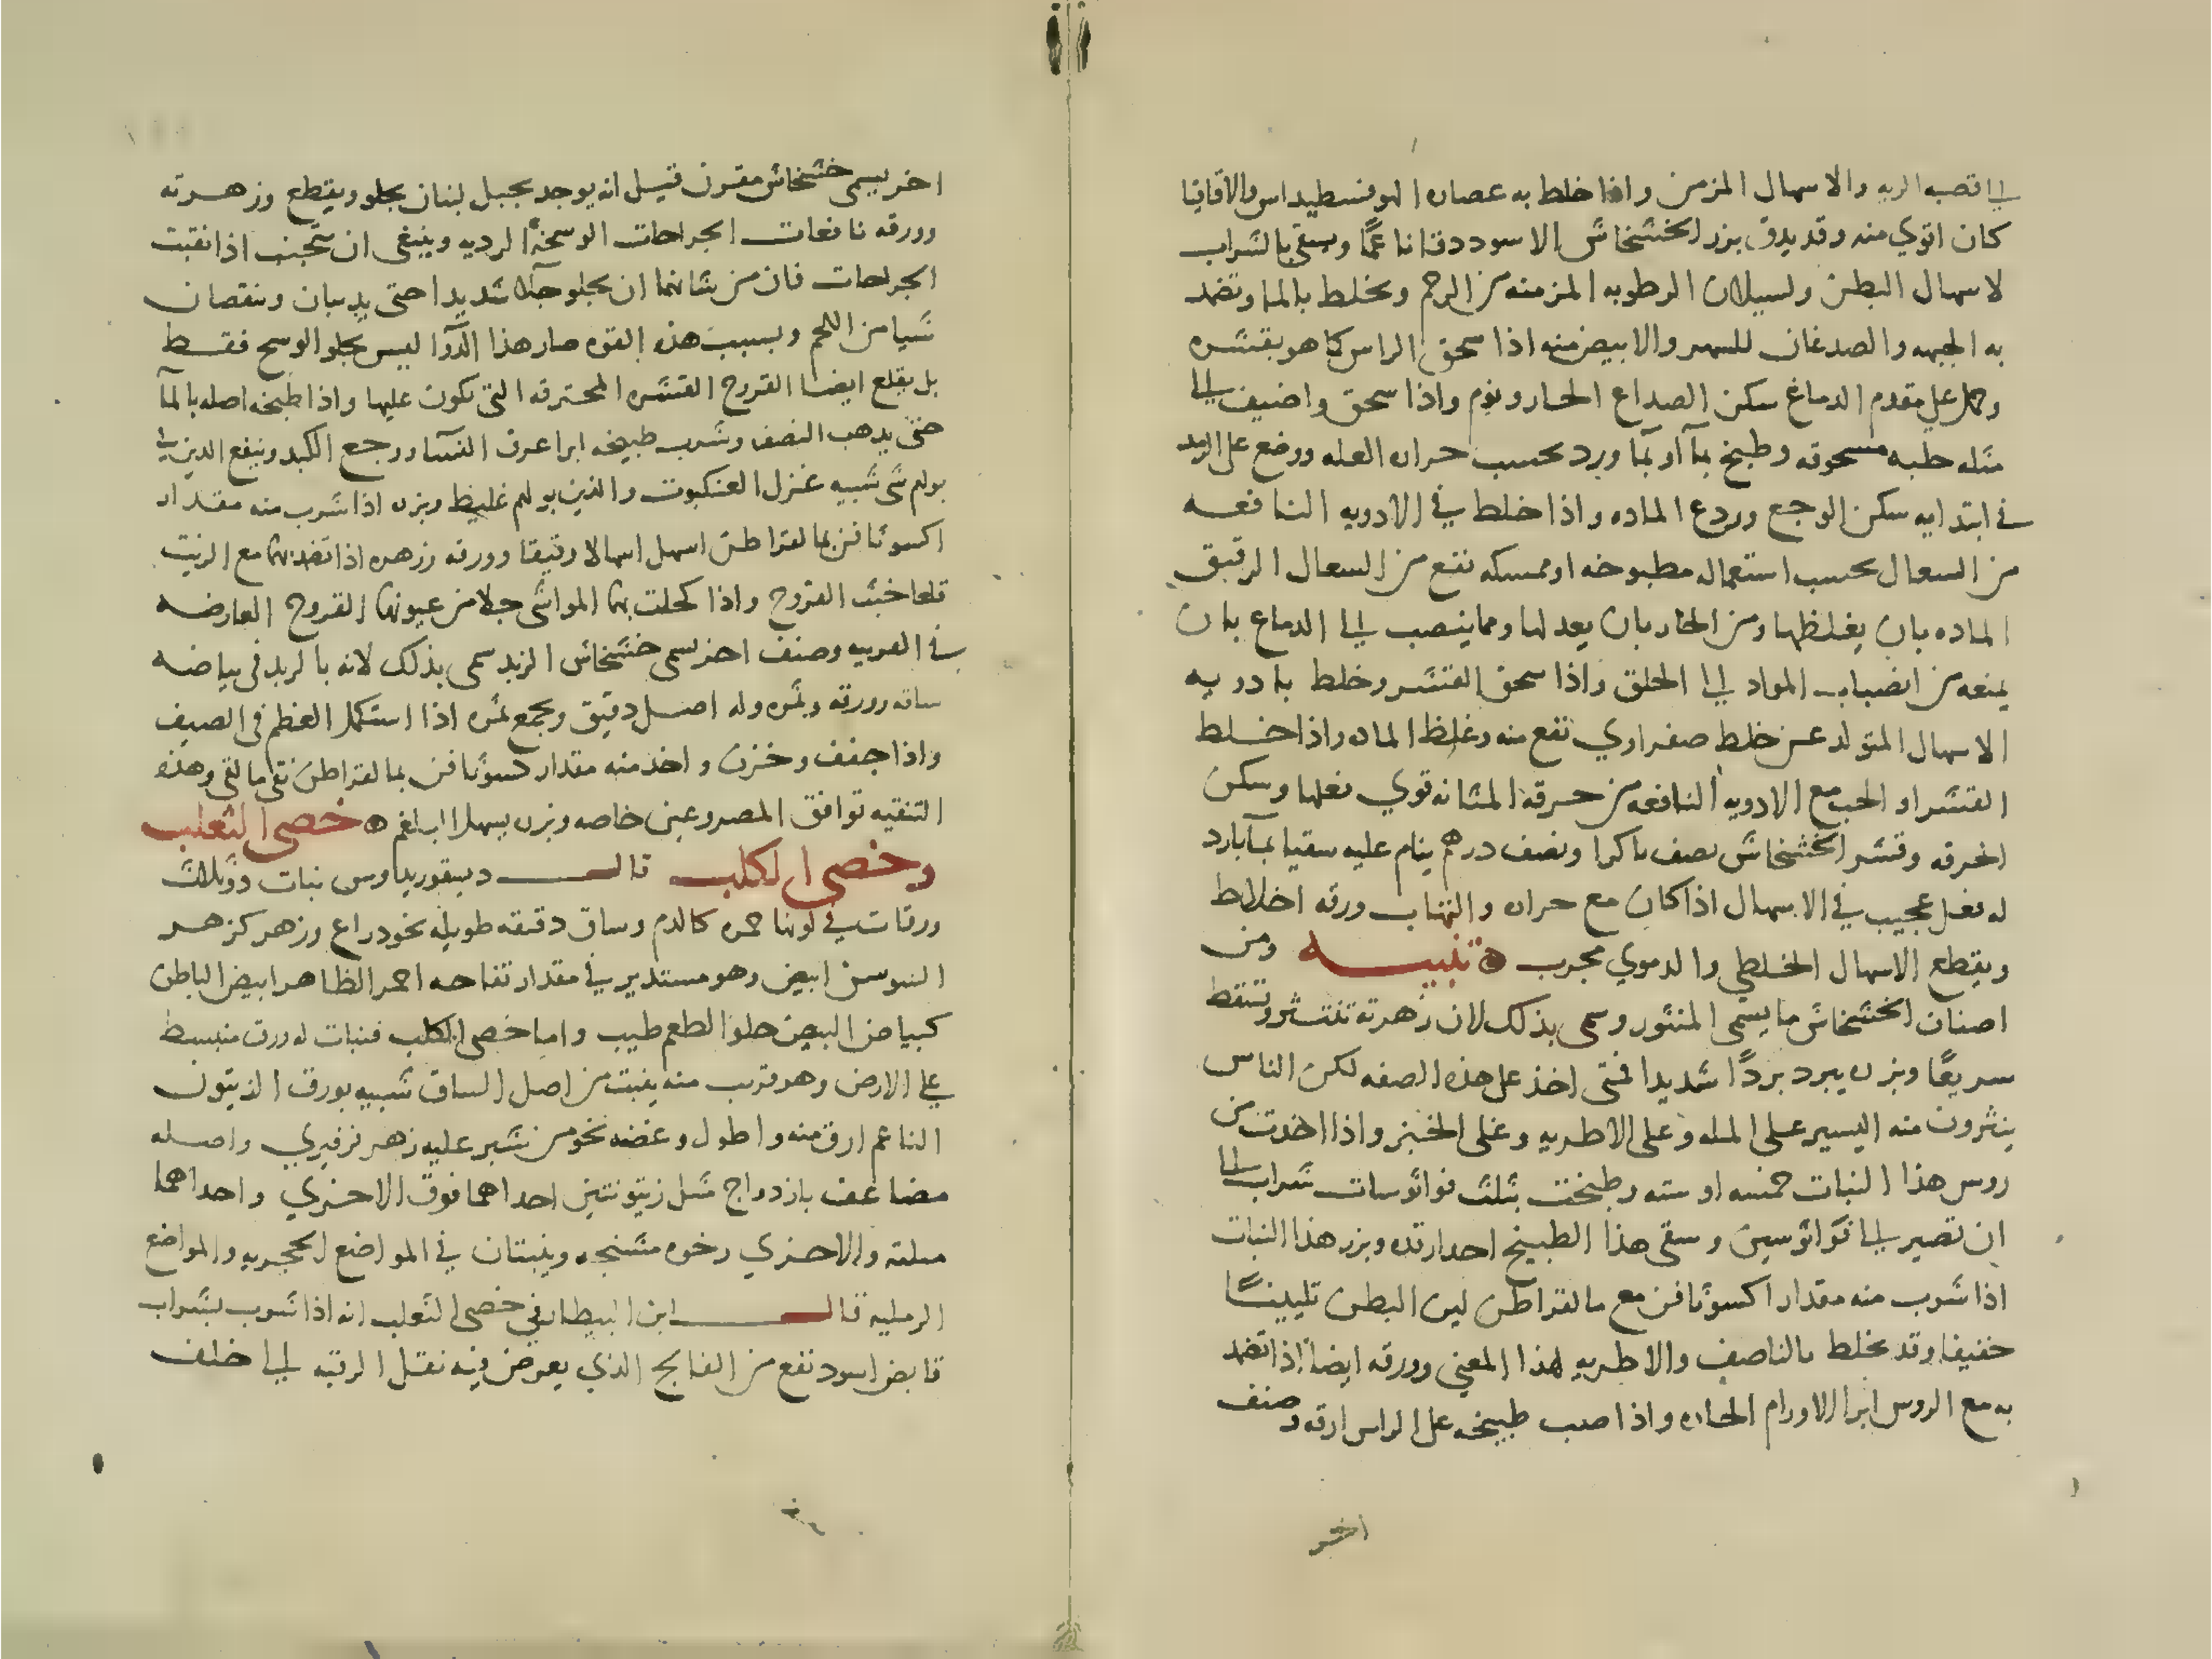 الى قصبه الريه والاسهال المزمن واذا خلط به عصاره الهوفسطيداس والاقاقيا
كان اقوي منه وقد يدق بزر الخشخاش الاسود دقا ناعمًا ويسقى بالشراب
لاسهال البطن ولسيلان الرطوبه المزمنه من الرحم ويخلط بالما وتضمد
به الجبهه والصدغان للسهر والابيض منه اذا سحق الراس كما هو بقشره
وحمل على مقدم الدماغ سكن الصداع الحار ونوم واذا سحق واضيف الى
مثله حلبه مسحوقه وطبخ بمآ او بما ورد بحسب حراره العله ووضع على الرمد
في ابتدايه سكن الوجع وردع الماده واذا خلط في الادويه النافعه
من السعال بحسب استعماله مطبوخه او ممسكه نفع من السعال الرقيق
الماده بان يغلظها ومن الحار بان يعدلها ومما ينصب الى الدماغ بان
يمنعه من انصباب المواد الى الحلق واذا سحق القشر وخلط بادويه
الاسهال المتولد عن خلط صفراوي نفع منه وغلظ الماده واذا خلط
القشر او الحب مع الادويه النافعه من حرقه المثانه قوي فعلها وسكن
الحرقه وقشر الخشخاش نصف باكرا ونصف درهم ينام عليه سقيا بمآ بارد
له فعل عجيب في الاسهال اذا كان مع حراره والتهاب ورقه اخلاط
ويقطع الاسهال الخلطي والدموي مجرب ه تنبيه ومن
اصناف الخشخاش ما يسمى المنثور وسمى بذلك لان زهرته تنتثر وتسقط
سريعًا وبزره يبرد بردًا شديدا فمتى اخذ على هذه الصفه لكن الناس
ينثرون منه اليسير على المله وعلى الاطريه وعلى الخبز واذا اخذت من
روس هذا النبات خمسه او سته وطبخت بثلث قوانوسات شراب الى
ان تصير الى قوانوسين وسقى هذا الطبيخ احدا رقده وبزر هذا النبات
اذا شرب منه مقدار اكسوثافن مع مالقراطن لين البطن تليينًا
خفيفا وقد يخلط بالناصف والاطريه لهذا المعنى وورقه ايضا اذا تضمد
به مع الروس ابرا الاورام الحاره واذا صب طبيخه على الراس ارقد وصنف
اخر
اخر يسمى خشخاش مقرن قيل انه يوجد بجبل لبنان يجلو ويقطع وزهرته
وورقه نافعات الجراحات الوسخة الرديه وينبغى ان تجتنب اذا نقيت
الجراحات فان من شانهما ان يجلو جلآ شديدا حتى يدبان وينقصان
شيا من اللحم وبسبب هذه القوه صار هذا الدوآ ليس يجلو الوسخ فقط
بل يقلع ايضا القروح القشره المحترقه التى تكون عليها واذا طبخ اصله بالمآ
حتى يدهب النصف وشرب طبيخه ابرا عرق النسآ ووجع الكبد وينفع الدين في
بولهم شى شبيه غزل العنكبوت والذين بولهم غليظ وبزره اذا شرب منه مقدار
اكسوثافن بمالقراطن اسهل اسهالا رقيقا وورقه وزهره اذا تضمد بهما مع الزيت
قلعا خبث القروح واذا كحلت بهما المواشى جلا من عيونها القروح العارضه
في القرنيه وصنف اخر يسمى خشخاش الزبد سمى بذلك لانه بالزبد في بياضه
ساقه وورقه وثمره وله اصل دقيق ويجمع ثمره اذا استكمل العظم في الصيف
واذا جفف وخزن واخذ منه مقدار كسوثافن بمالقراطن نقى مالقى وهذه
التنقيه توافق المصروعين خاصه وبزره يسهل البلغم ه خصى الثعلب
وخصى الكلب قال ديسقوريداوس نبات ذو ثلاث
ورقات في لونها حمره كالدم وساق دقيقه طويله نحو دراع وزهر كزهر
السوسن ابيض وهو مستدير في مقدار تفاحه احمر الظاهر ابيض الباطن
كبياض البيض حلو الطعم طيب واما خصى الكلب فنبات له ورق منبسط
على الارض وهو قريب منه ينبت من اصل الساق شبيه بورق الزيتون
الناعم ارق منه واطول وغصنه نحو من شبر عليه زهر فرفيري واصله
مضاعف بازدواج مثل زيتونتين احداهما فوق الاخري واحداهما
مملته والاخري رخوه متشنجه وينبتان في المواضع الحجريه والمواضع
الرمليه قال ابن البيطار في خصى الثعلب انه اذا شرب بشراب
قابض اسود نفع من الفالج الذي يعرض فيه نقل الرقبه الى خلف